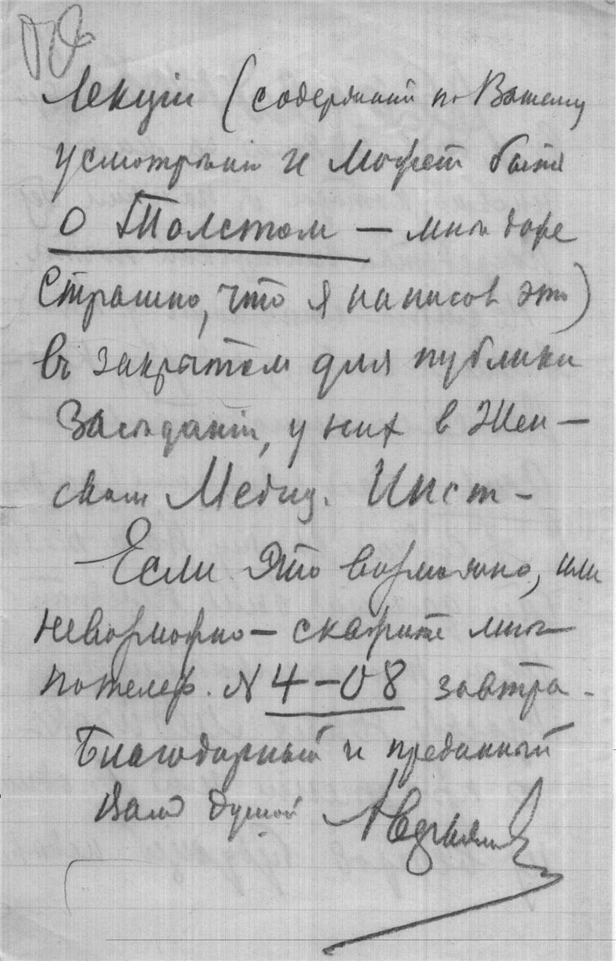 Лекцiи (содержанiй по Вашему
усмотрѣнiю и может быть
о Толстом — мнѣ даже
страшно, что я написал это)
въ закрытом для публики
Засѣданiи, у них в Жен-
ском Медиц. Инст-
Если это возможно, или
невозможно — скажите мнѣ
по телеф. N 4-08 завтра.
Благодарный и преданный
Вам душой